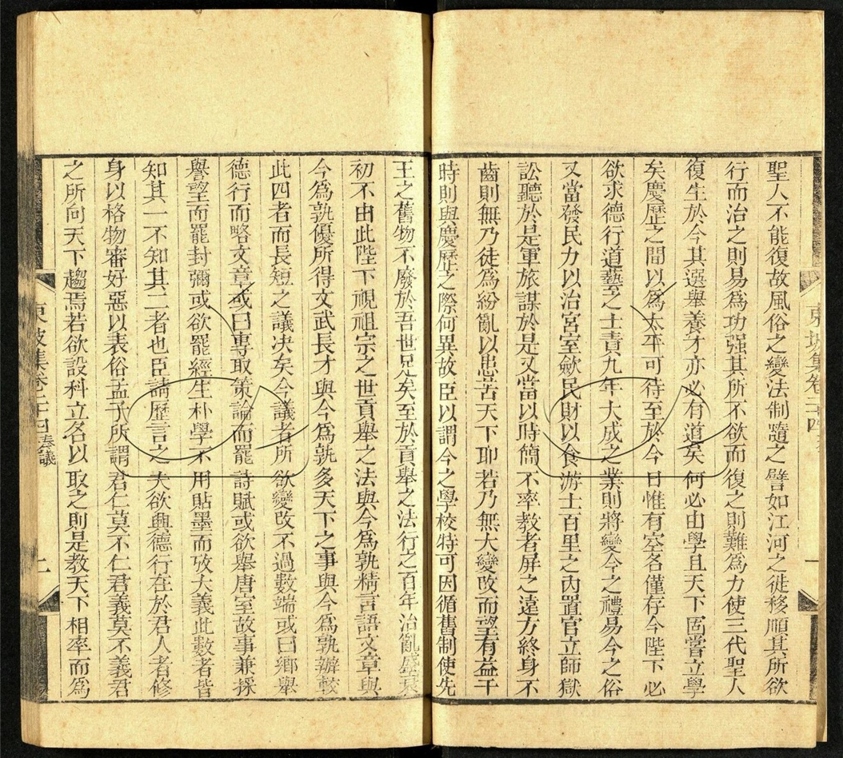 聖人不能復故風俗之變法制隨之譬如江河之徙移順其所欲
行而治之則易爲功强其所不欲而復之則難爲力使三代聖人
復生於今其選舉養才亦必有道矣何必由學且天下固嘗立學
矣慶歷之間以爲太平可待至於今日惟有空名僅存今陛下必
欲求德行道藝之士責九年大成之業則將變今之禮易今之俗
又當發民力以治宮室歛民財以食游士百里之內置官立師獄
訟聽於是軍旅謀於是又當以時簡不率教者屏之遠方終身不
齒則無乃徒爲紛亂以患苦天下耶若乃無大變改而望有益于
時則與慶歷之際何異故臣以謂今之學校特可因循舊制使先
王之舊物不廢於吾世足矣至於貢舉之法行之百年治亂盛衰
初不由此陛下視祖宗之世貢舉之法與今爲孰精言語文章與
今爲孰優所得文武長才與今爲孰多天下之事與今爲孰辦較
此四者而長短之議决矣今議者所欲變改不過數端或曰鄉舉
德行而略文章或曰專取策論而罷詩賦或欲舉唐室故事兼採
譽望而罷封彌或欲罷經生朴學不用貼墨而攷大義此數者皆
知其一不知其二者也臣請歷言之夫欲興德行在於君人者修
身以格物審好惡以表俗孟子所謂君仁莫不仁君義莫不義君
之所向天下趨焉若欲設科立名以取之則是教天下相率而爲
東坡集卷二十四 奏議
二